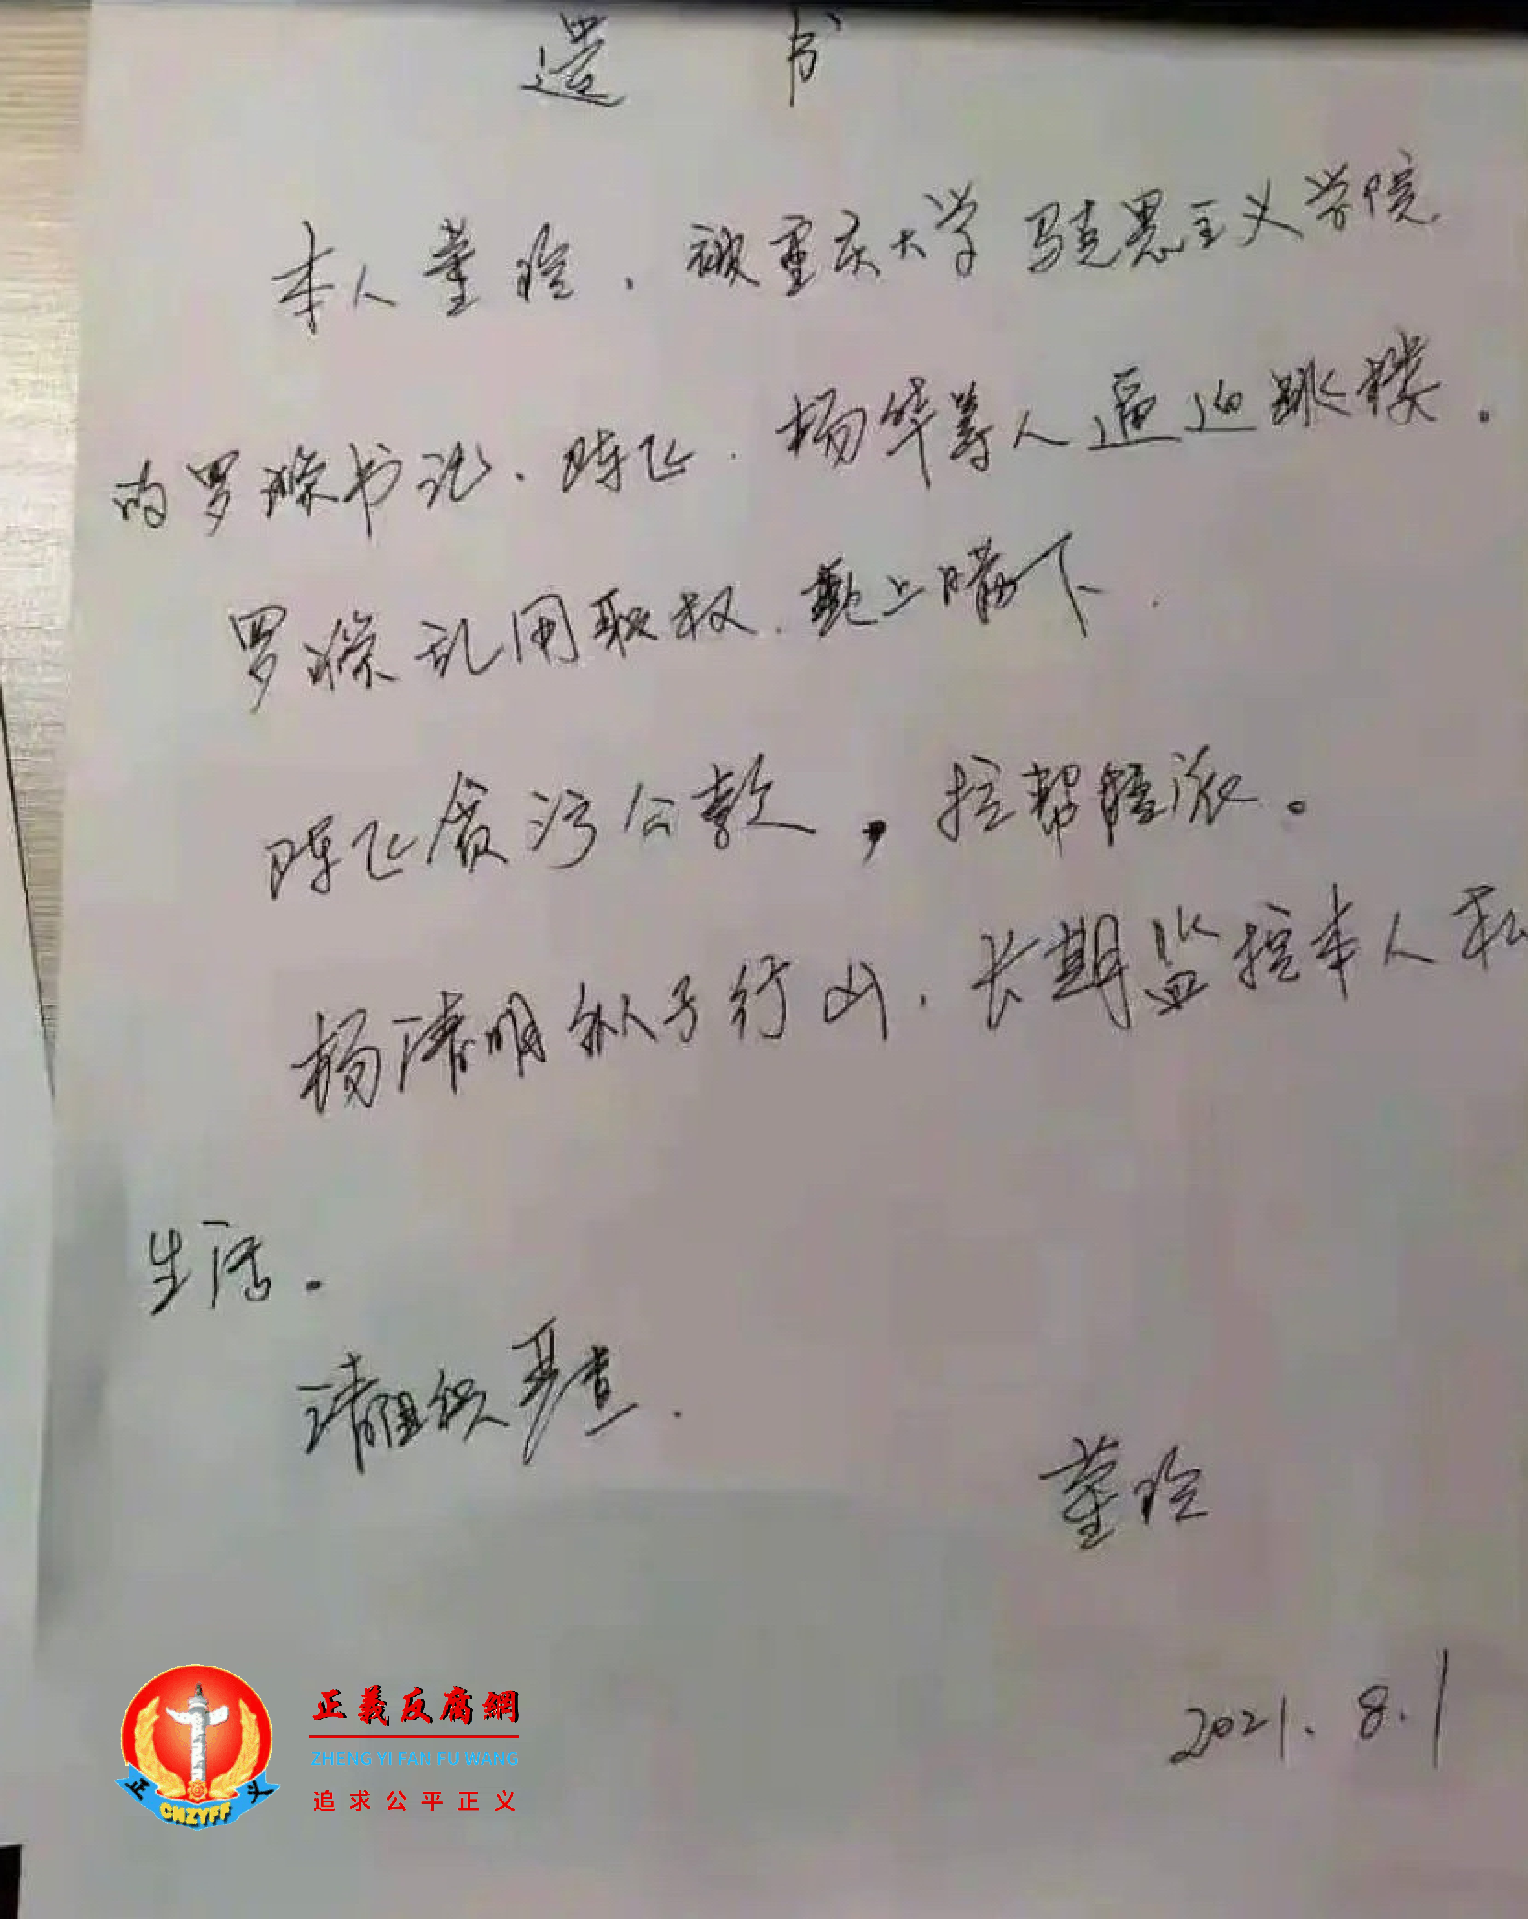 遗 书
本人董玲，被重庆大学马克思主义学院
的罗濙书记、陈飞、杨华等人逼迫跳楼。
罗濙乱用职权、欺上瞒下.
陈飞贪污公款，拉帮结派。
杨清明纵子行凶、长期监控本人私
生活.
请组织严查.
董玲
2021.8.1
正義反腐網
ZHENG YI FAN FU WANG
追求公平正义
正 义
CNZYFF